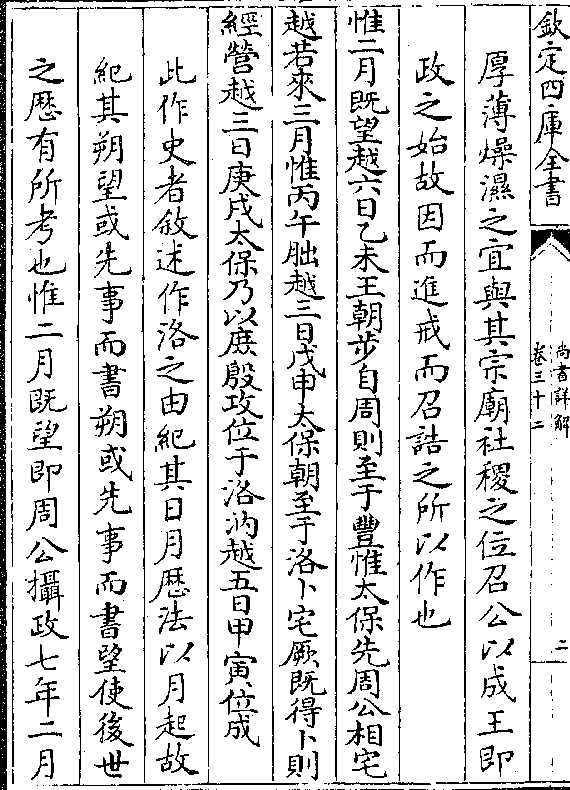 欽定四庫全書
尚書詳解
卷三十二
二
厚薄燥濕之宜與其宗廟社稷之位召公以成王即
政之始故因而進戒而召誥之所以作也
惟二月既望越六日乙未王朝步自周則至于豐惟太保先周公相宅
越若來三月惟丙午朏越三日戊申太保朝至于洛卜宅厥既得卜則
經營越三日庚戌太保乃以庶殷攻位于洛汭越五日甲寅位成
此作史者敘述作洛之由紀其日月歴法以月起故
紀其朔望或先事而書朔或先事而書望使後世
之歴有所考也惟二月既望即周公攝政七年二月